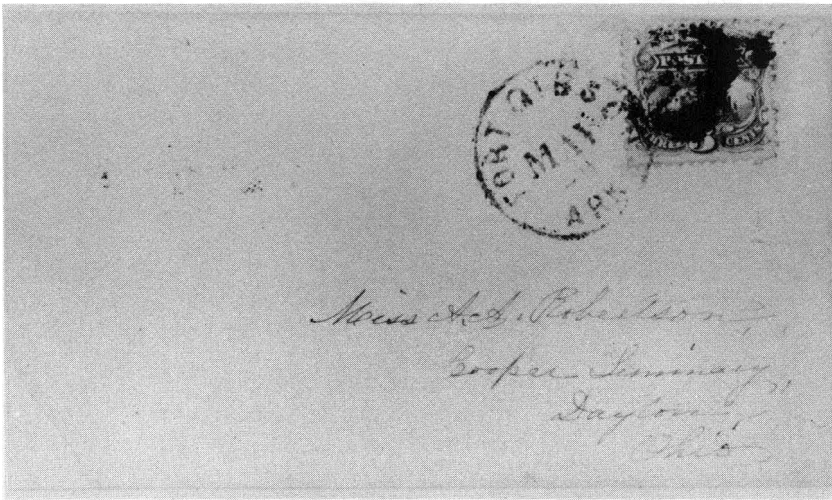 POST
FORT GIBSON
MAR
ARK
Miss A. A. Robertson,
Cooper Seminary,
Dayton,
Ohio